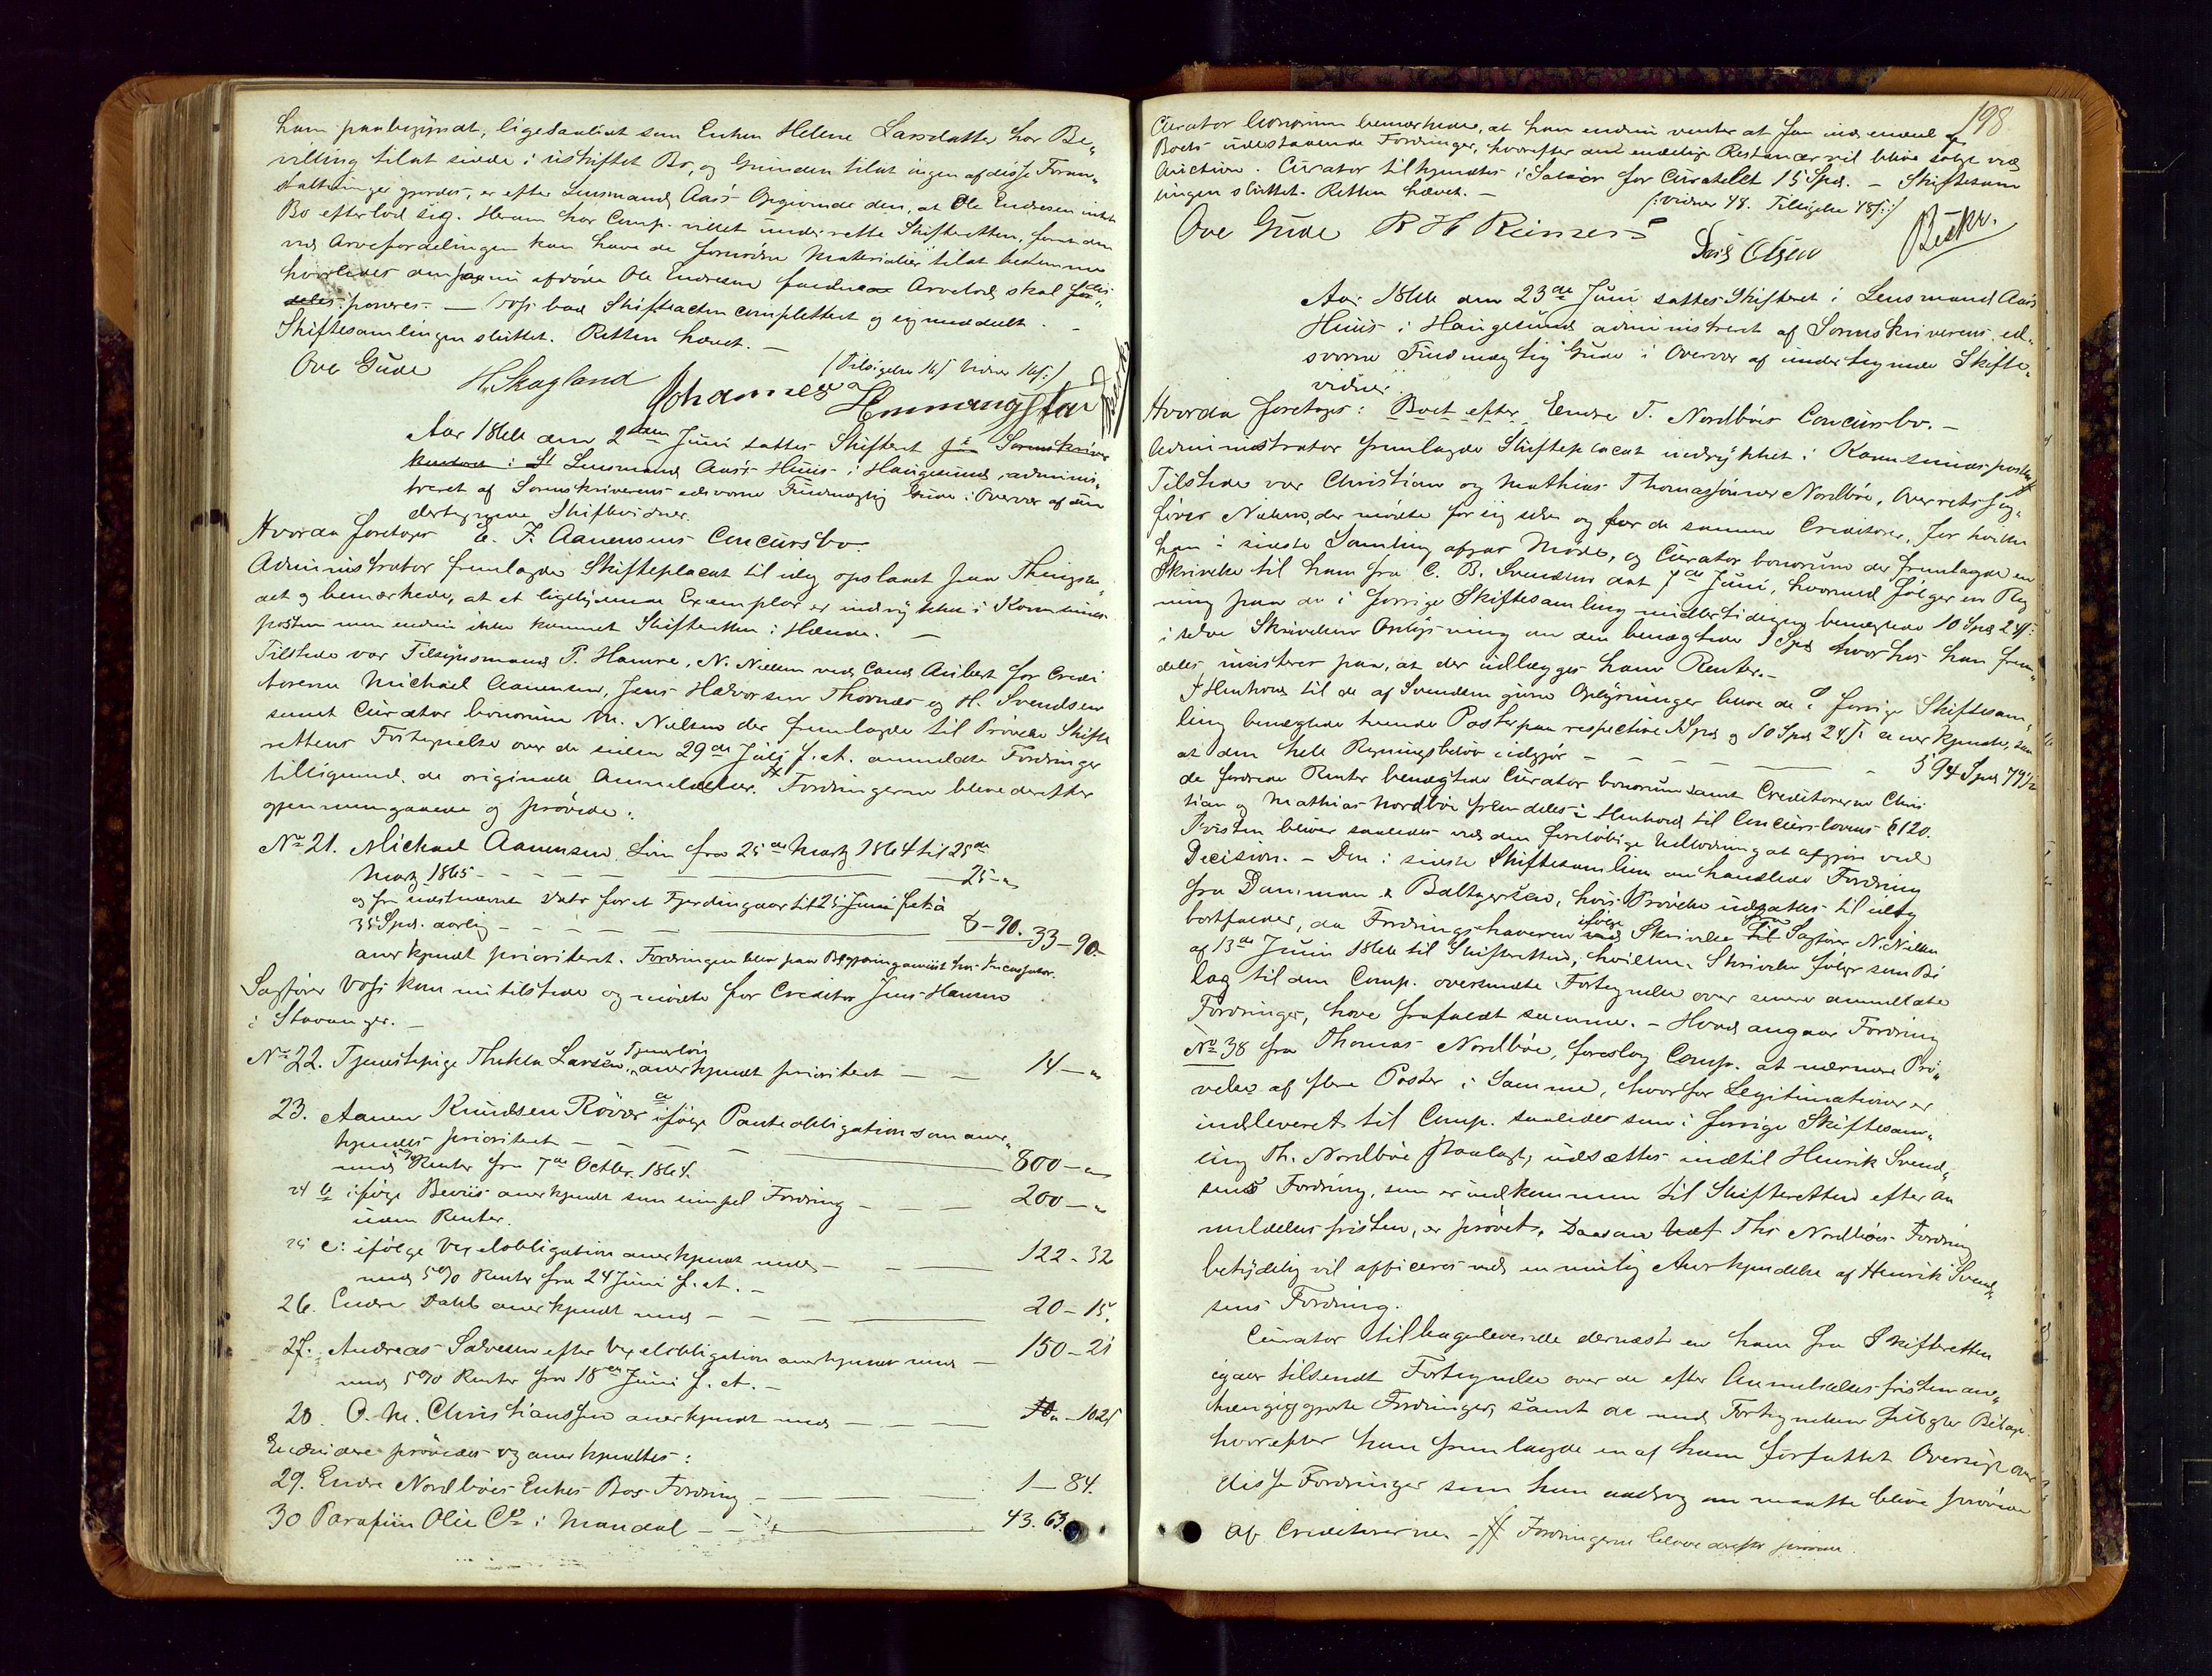 ham paabegyndt, ligesaalidt som Enken Helene Larsdatter har Be„
villing til at sidde i uskiftet Bo, og Grunden til at ingen af disse Foran„
staltninger gjordes, er efter Lensmand Aas's Opgivende den, at Ole Endresen intet
Bo efterlod sig. Herom har Comp. villet underrette Skifteretten, forat den
ved Arvefordelingen kan have de fornødne Materialier til at bestemme
hvorledes den paa nu afdøde Ole Endresen faldne Arvelod skal
poneres. — Voss bad Skifteacten complettert og sig meddeelt. –
Skiftesamlingen sluttet. Retten hævet. —
(Tilsigelse 16/ Vidner 16/:)
Ove Gude H. Skogland Johannes Hemmingstad
Aar 1866 den 2den Juni sattes Skifteret paa Sorenskriver
kontoret i St Lensmand Aas's Huus i Haugesund, admini„
streret af Sorenskriverens edsvorne Fuldmægtig Gude i Overvær af un
dertegnede Skiftevidner.
Hvorda foretoges E. F. Aanensens Concursbo.
Administrator fremlagde Skifteplacat til idag opslaaet paa Thingste„
det og bemærkede, at et ligelydende Exemplar er indrykket i Karmsunds
posten men endnu ikke kommet Skifteretten i Hænde. —
Tilstede var Tilsynsmand P. Hamre, N. Nielsen ved Cand. Aubert for Credi
torerne Michael Aanensen, Jens Halvorsen Thornæs og H. Svendsen
samt Curator bonorum M. Nielsen der fremlagde til Prøvelse Skifte
rettens Fortegnelse over de siden 29de Juli f. A. anmeldte Fordringer
tilligemed de originale Anmeldelser. Fordringerne bleve derefter
gjennemgaaede og prøvede:
No 21. Michael Aanensen Løn fra 25de Marts 1864 til 25de
Marts 1865 - - - - - — 25 - „
og fra sidstnævnte Dato for et Fjerdingaar til 25 Juni f. A. à
35 Spd. aarlig - - - - — 8 - 90. 33 - 90.
anerkjendt prioriteret. Fordringen blev paa Begjæring anviist hos Incassator.
Sagfører Voss kom nu tilstede og mødte for Creditor Jens Hansen
i Stavanger. —
No 22. Tjenestepige Thekla Larsen, Tjenerløn anerkjendt prioriteret — — 14 — „
23. Aanen Knudsen Røvær a ifølge Panteobligation som aner„
kjendes prioriteret - - - — 800 — „
med 5% Renter fra 7de Octbr. 1864.
24 b ifølge Beviis anerkjendt som simpel Fordring — — 200 — „
uden Renter.
25 c: ifølge Vexelobligation anerkjendt med — — 122 - 32
med 5% Renter fra 24 Juni f. A. —
26. Endre Dahl anerkjendt med - - - — 20 - 15.
27. Andreas Salvesen efter Vexelobligation anerkjendt med — 150 - 21
med 5% Renter fra 18de Juni f. A. —
28. O. M. Christianssen anerkjendt med — — — 102
Endvidere prøvedes og anerkjendtes:
29. Endre Nordbøes Enkes Bos Fordring. — — 1 — 84.
30 Parafiin Olie Co i Mandal — — 43. 63.
198
Curator bonorum bemærkede, at han endnu venter at faa ind endeel af
Boets udestaaende Fordringer, hvorefter den endelige Restancer vil blive solgt ved
Auction. Curator tilkjendtes i Salair for Curatelet 15 Spd. — Skiftesam
lingen sluttet. Retten hævet. —
(: Vidner 48. Tilsigelse 48/:)
Ove Gude R H Reimers Beskr.
Lars Olsen
Aar 1866 den 23de Juni sattes Skifteret i Lensmand Aas's
Huus i Haugesund administreret af Sorenskriverens ed„
svorne Fuldmægtig Gude i Overvær af undertegnede Skifte„
vidner.
Hvorda foretoges: Boet efter Endre T. Nordbøes Concursbo. —
Administrator fremlagde Skifteplacat indrykket i Karmsundsposten
Tilstede var Christian og Mathias Thomassønner Nordbøe, Overretssag„
fører Nielsen, der mødte for sig selv og for de samme Creditorer, for hvilke
han i sidste Samling afgav Møde, og Curator bonorum der fremlagde en
Skrivelse til ham fra C. B. Svendsen dat 7de Juni, hvormed følger en Reg
ning paa de i forrige Skiftesamling midlertidigen benægtede 10 Spd 24 ß:
i selve Skrivelsen Oplysning om den benægtede 1 Spd hvorhos han frem„
deles insisterer paa, at der udlægges ham Renter. —
I Henhold til de af Svendsen givne Oplysninger bleve de i forrige Skiftesam„
ling benægtede tvende Poster paa respective 1 Spd og 10 Spd 24 ß anerkjendte, saa
at den hele Regningsbeløb udgjør - - - — — 594 Spd 79 ½
de fordrede Renter benægtede Curator bonorum samt Creditorerne Chris
tian og Mathias Nordbøe fremdeles i Henhold til Concurslovens § 120.
Tvisten bliver saaledes ved den foreløbige Udlodning at afgjøre ved
Decision. — Den i sidste Skiftesamling omhandlede Fordring
fra Damman & Balthersen, hvis Prøvelse udsattes til idag
bortfalder, da Fordringshaveren ifølge Skrivelse fra Sagfører N. Nielsen
af 13de Juni 1866 til Skifteretten, hvilken Skrivelse følger som Bi
lag til den Comp. oversendte Fortegnelse over senere anmeldte
Fordringer, have frafaldt samme. — Hvad angaar Fordring
No 38 fra Thomas Nordbøe, foreslog Comp. at nærmere Prø„
velse af flere Poster i Samme, hvorfor Legitimationer er
indleveret til Comp. saaledes som i forrige Skiftesam„
ling Th. Nordbøe paalagt, udsættes indtil Henrik Svend„
sens Fordring, som er indkommen til Skifteretten efter An
meldelsesfristen, er prøvet, Ths Nordbøes Fordring
betydelig vil afficeres ved en mulig Anerkjendelse af Henrik Svend„
sens Fordring.
Curator tilbageleverede dernæst en ham fra Skifteretten
igaar tilsendt Fortegnelse over de efter Anmeldelsesfristen an„
hængiggjorte Fordringer, samt de med Fortegnelsen fulgte Bilage.
hvorefter han fremlagde en af ham forfattet Oversigt over
disse Fordringer som han androg om maatte blive prøvede
af Creditorerne. — Fordringerne bleve derefter prøvede.